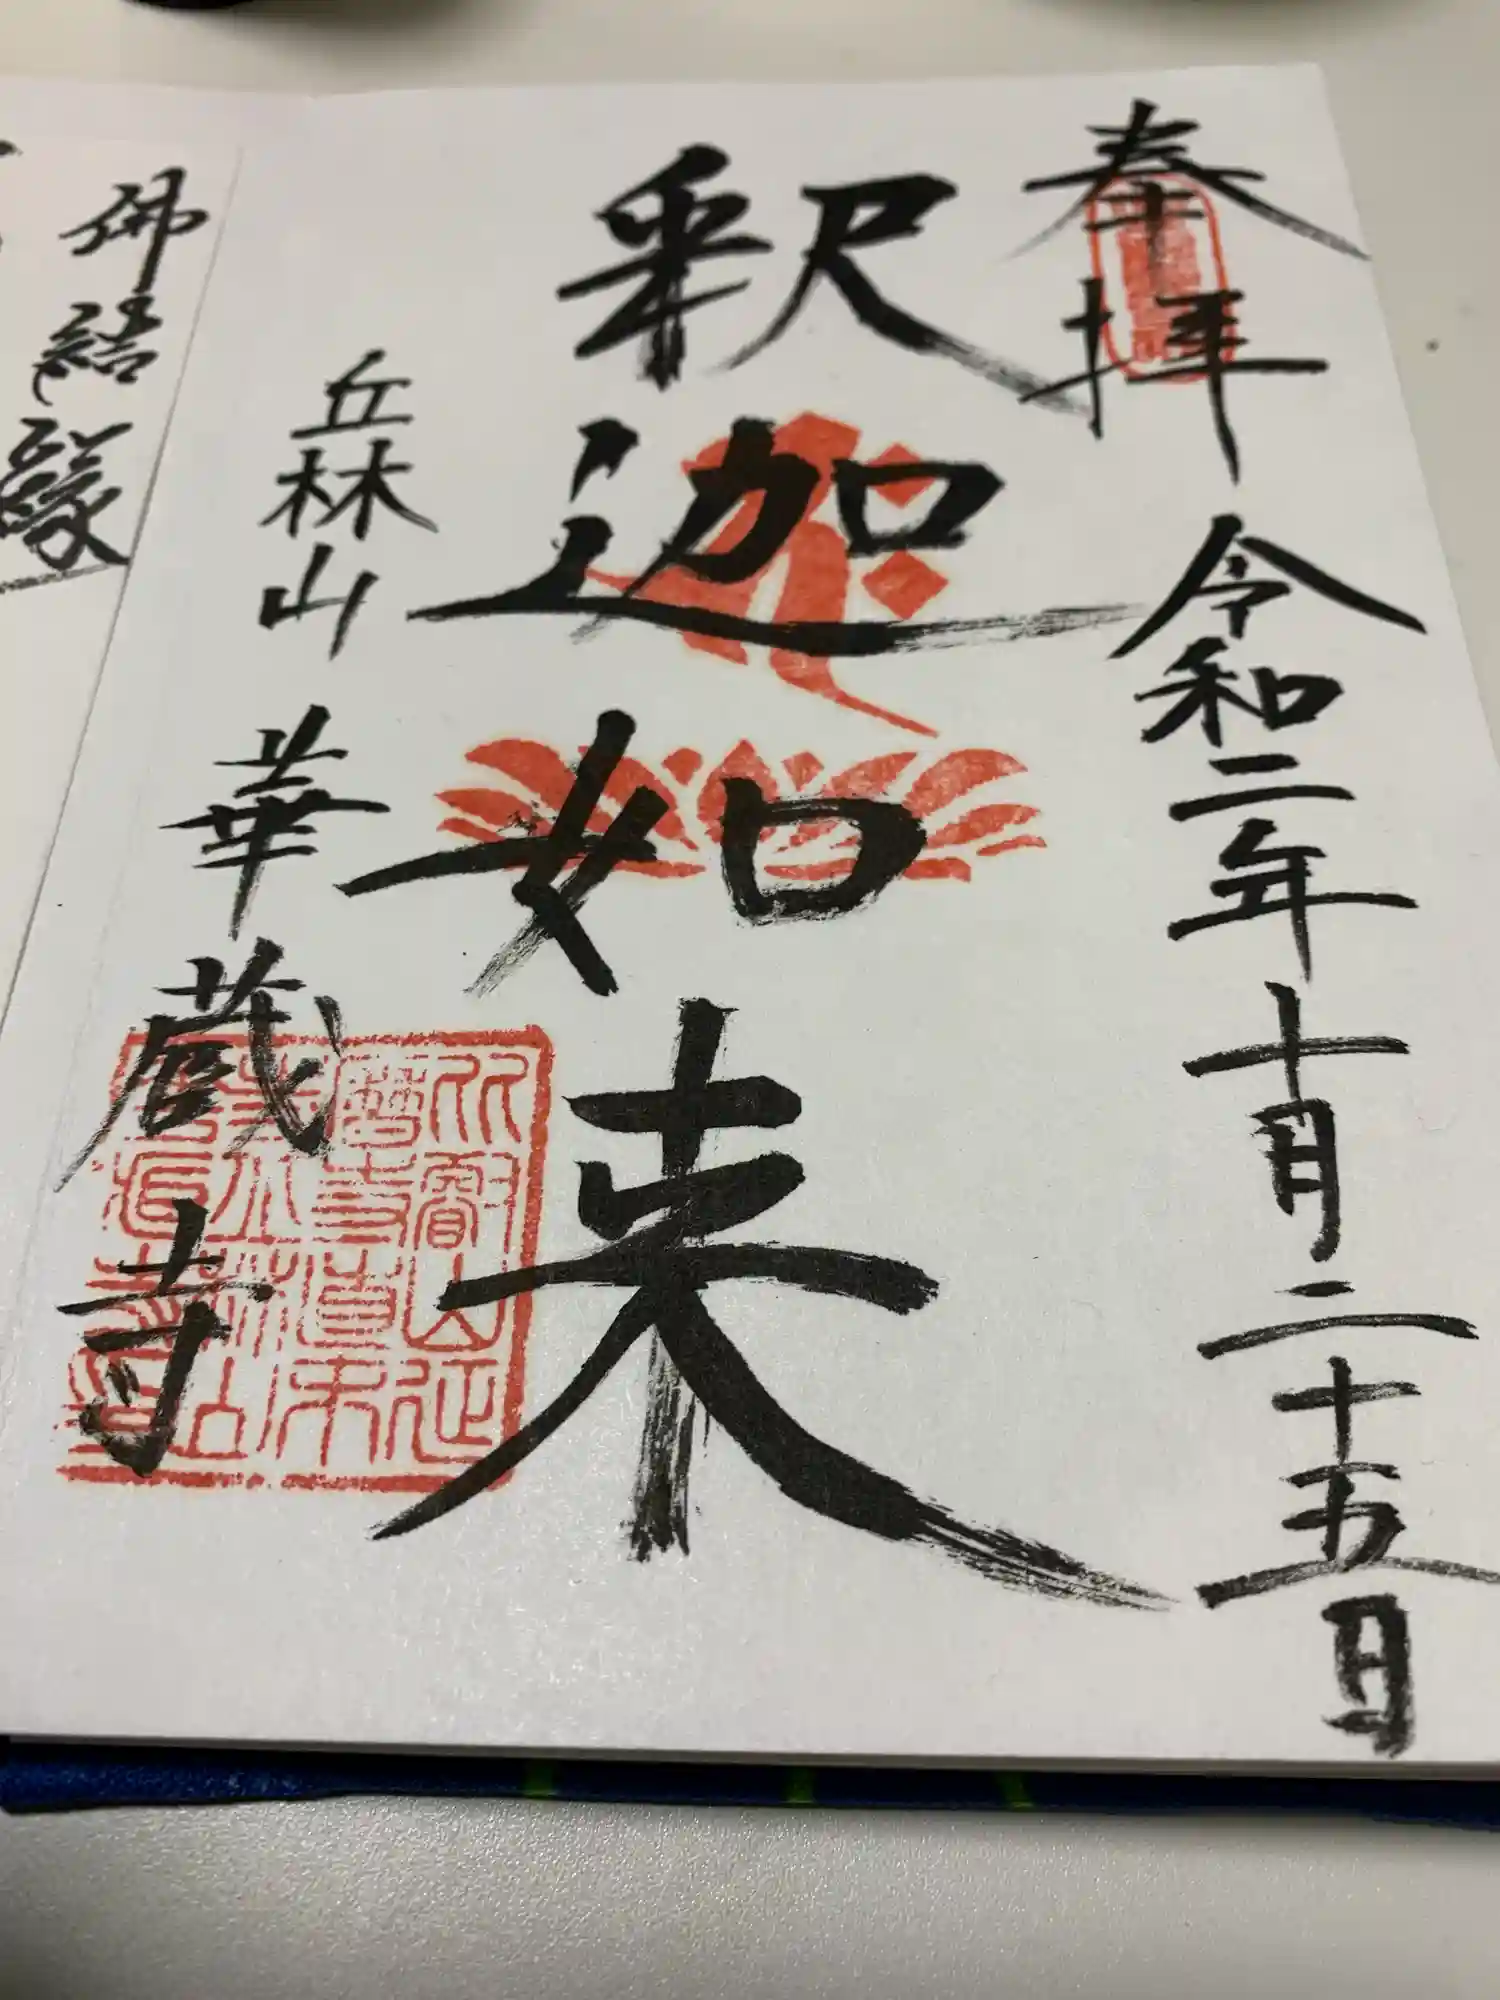 奉拝
令和二年十月二十五日
釈迦如来
丘林山
華蔵寺
佛結縁